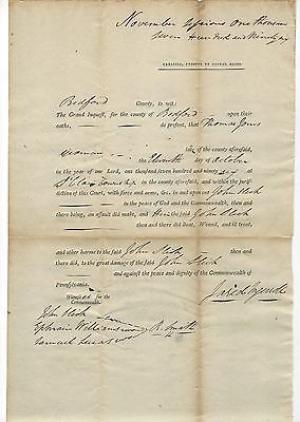 November Sessions One thousand
Seven Hundred and Ninety six
Bedford County, to wit:
The Grand Inquest, for the county of Bedford upon their
oaths, do present, that Thomas Jones
late of the county aforesaid,
yeoman on the Eleventh day of October
in the year of our Lord, one thousand seven hundred and ninety six at
St. Clair Township in the county aforesaid, and within the jurisdiction
of this Court, with force and arms, &c. in and upon one John
in the peace of God and the Commonwealth, then and
there being, an assault did make, and him the said John
then and there did beat, wound, and ill treat,
and other harms to the said John then and
there did, to the great damage of the said John
and against the peace and dignity of the Commonwealth of
Pennsylvania.
Witnesses for the
Commonwealth.
Jared Ingersoll
John
Ephraim Williams
Samuel